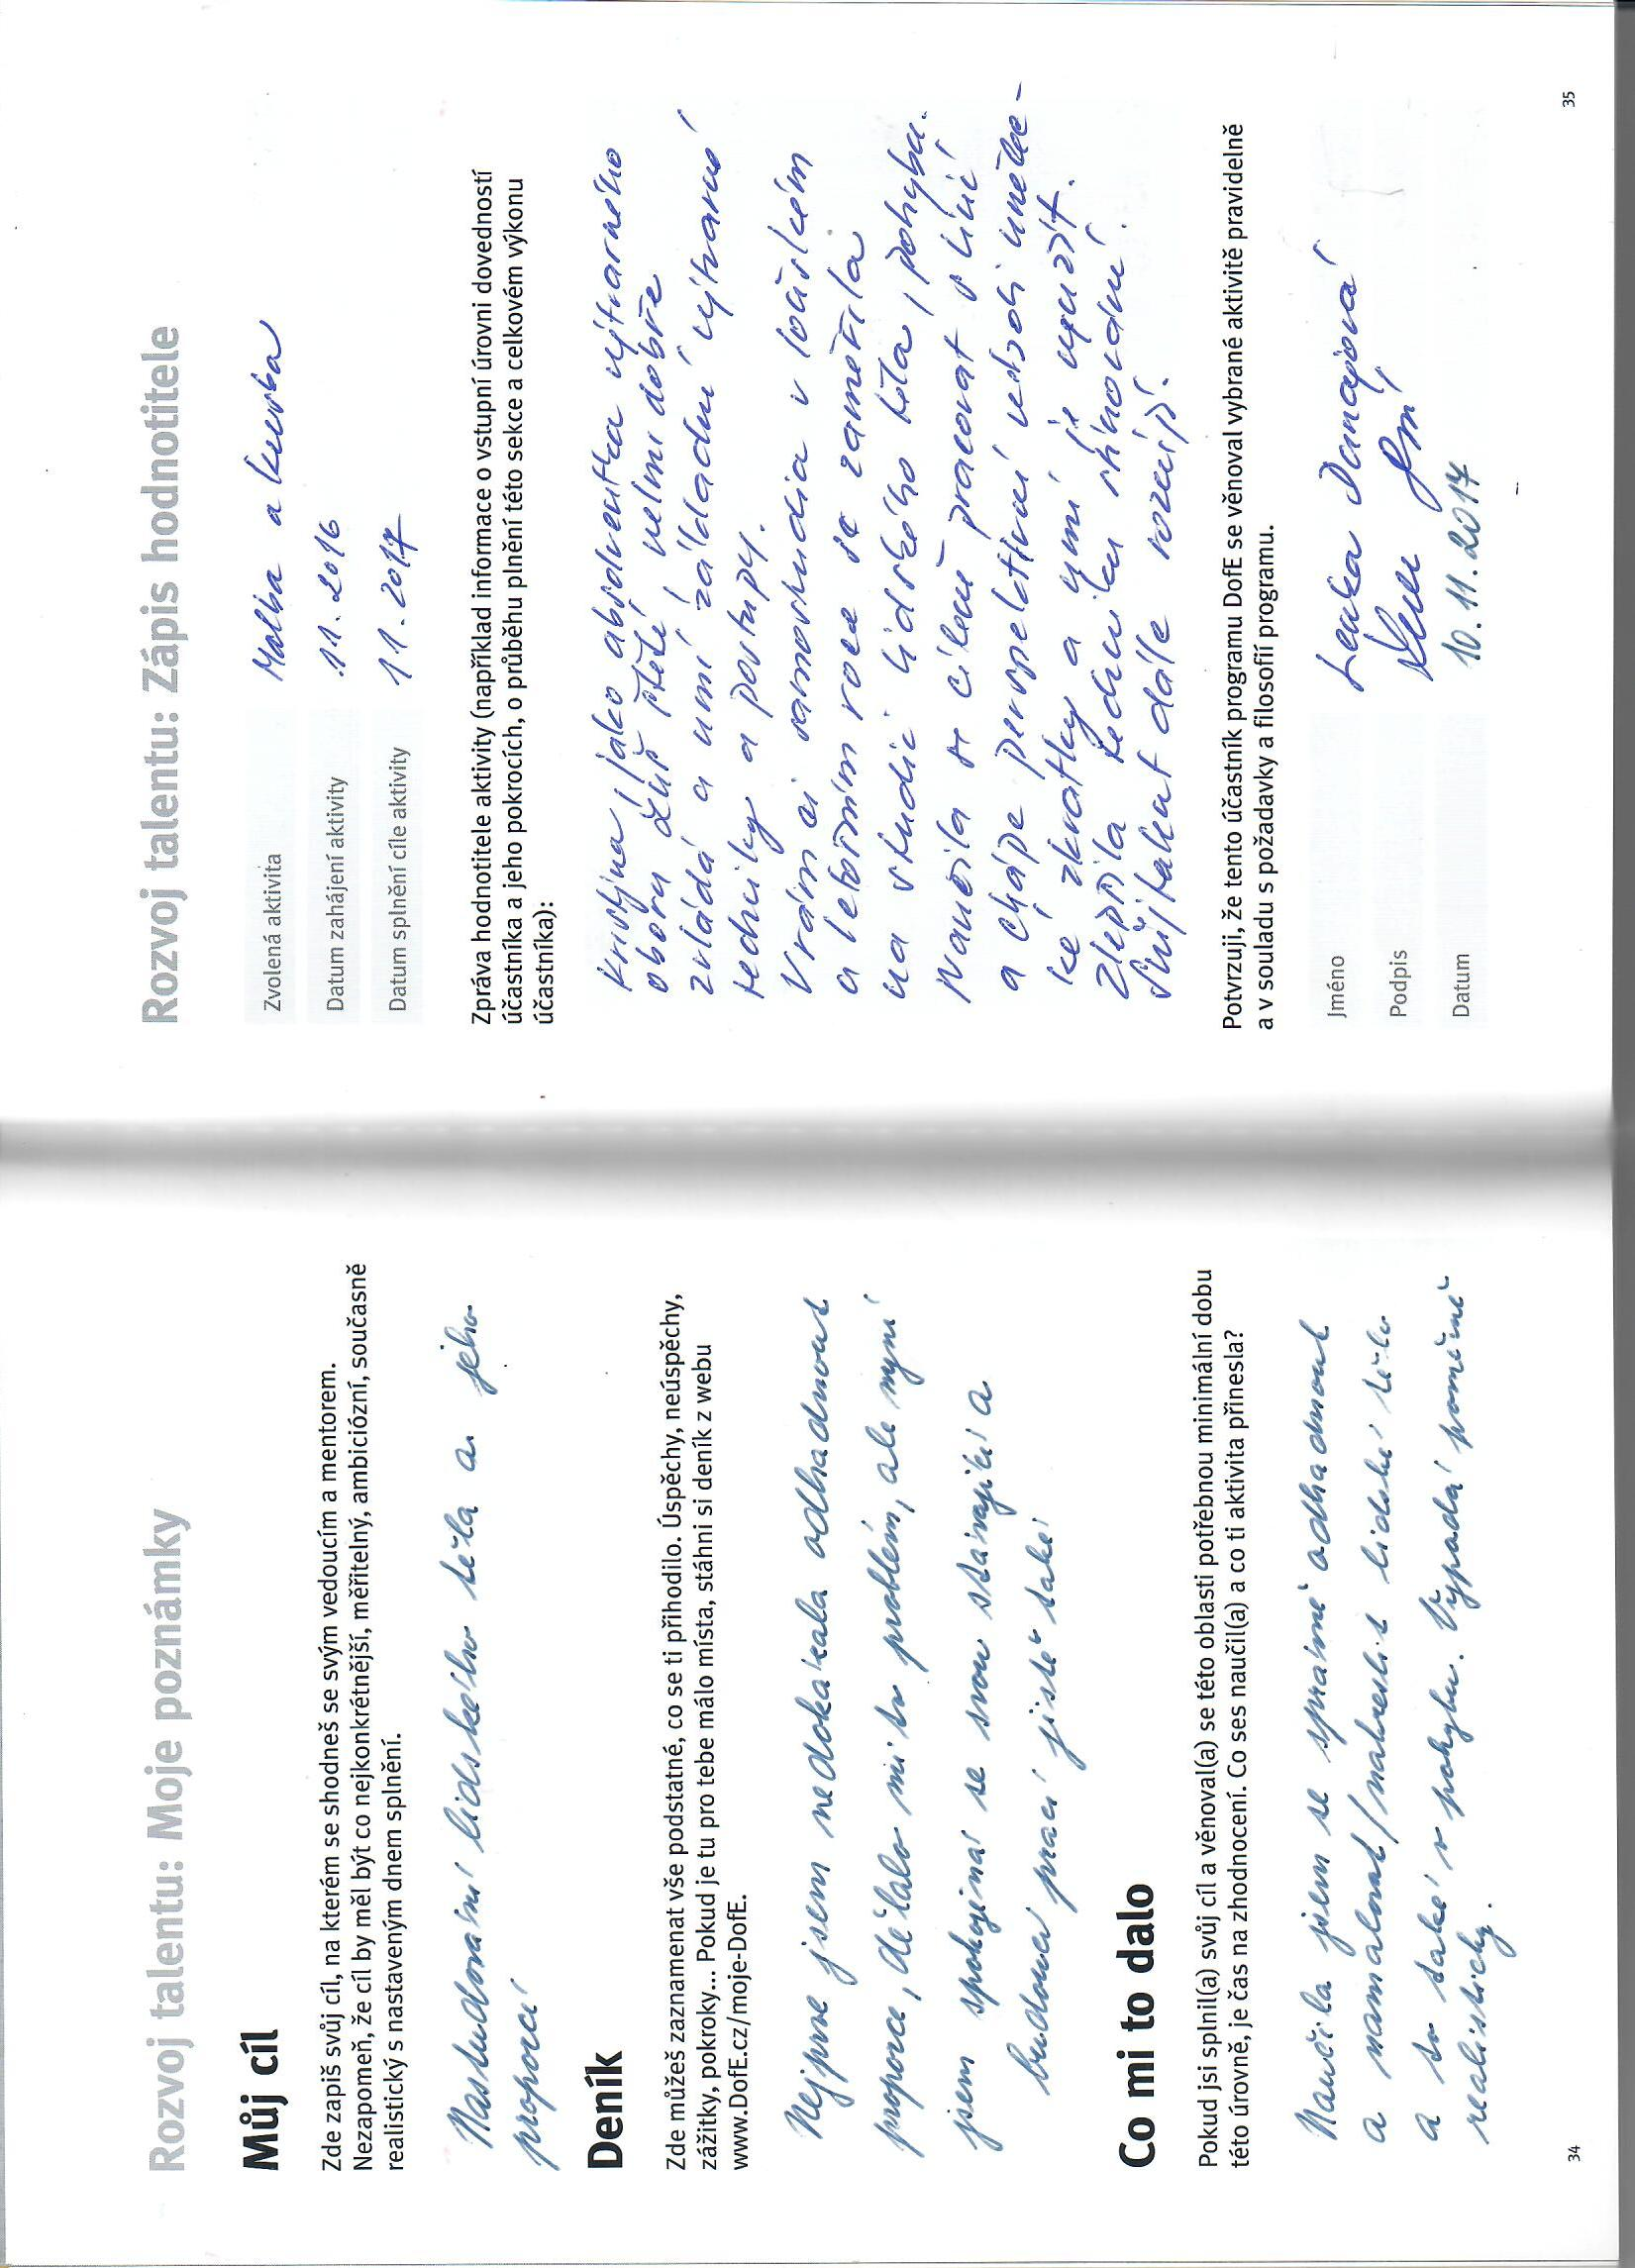 Rozvoj talentu: Moje poznámky
Můj cíl
Zde zapiš svůj cíl, na kterém se shodneš se svým vedoucím a mentorem.
Nezapomeň, že cíl by měl být co nejkonkrétnější, měřitelný, ambiciózní, současně
realistický s nastaveným dnem splnění.
Nastudování lidského těla a jeho
proporcí
Deník
Zde můžeš zaznamenat vše podstatné, co se ti přihodilo. Úspěchy, neúspěchy,
zážitky, pokroky... Pokud je tu pro tebe málo místa, stáhni si deník z webu
www.DofE.cz/moje-DofE.
Nejprve jsem nedokázala odhadnout
proporce, dělalo mi to problém, ale nyní
jsem spokojená se svou stávající a
budoucí prací jistě také
Co mi to dalo
Pokud jsi splnil(a) svůj cíl a věnoval(a) se této oblasti potřebnou minimální dobu
této úrovně, je čas na zhodnocení. Co ses naučil(a) a co ti aktivita přinesla?
Naučila jsem se správně odhadnout
a namalovat/nakreslit lidské tělo
a to také v pohybu. Vypadá poměrně
realisticky.
34
Rozvoj talentu: Zápis hodnotitele
Zvolená aktivita Malba a kresba
Datum zahájení aktivity 11. 2016
Datum splnění cíle aktivity 11. 2017
Zpráva hodnotitele aktivity (například informace o vstupní úrovni dovedností
účastníka a jeho pokrocích, o průběhu plnění této sekce a celkovém výkonu
účastníka):
Kristýna, jako absolventka výtvarného
oboru ZUŠ velmi dobře
zvládá a umí základní výtvarné
techniky a postupy.
V rámci samostudia v loňském
a letošním roce se zaměřila
na studii lidského těla, pohybu.
Naučila se cíleně pracovat s linií
a chápe perspektivní neboli umělec-
ké zkratky a nyní je využít.
Zlepšila techniku stínování.
Svůj talent dále rozvíjí.
Potvrzuji, že tento účastník programu DofE se věnoval vybrané aktivitě pravidelně
a v souladu s požadavky a filosofií programu.
Jméno Lenka
Podpis
Datum 10. 11. 2017
35